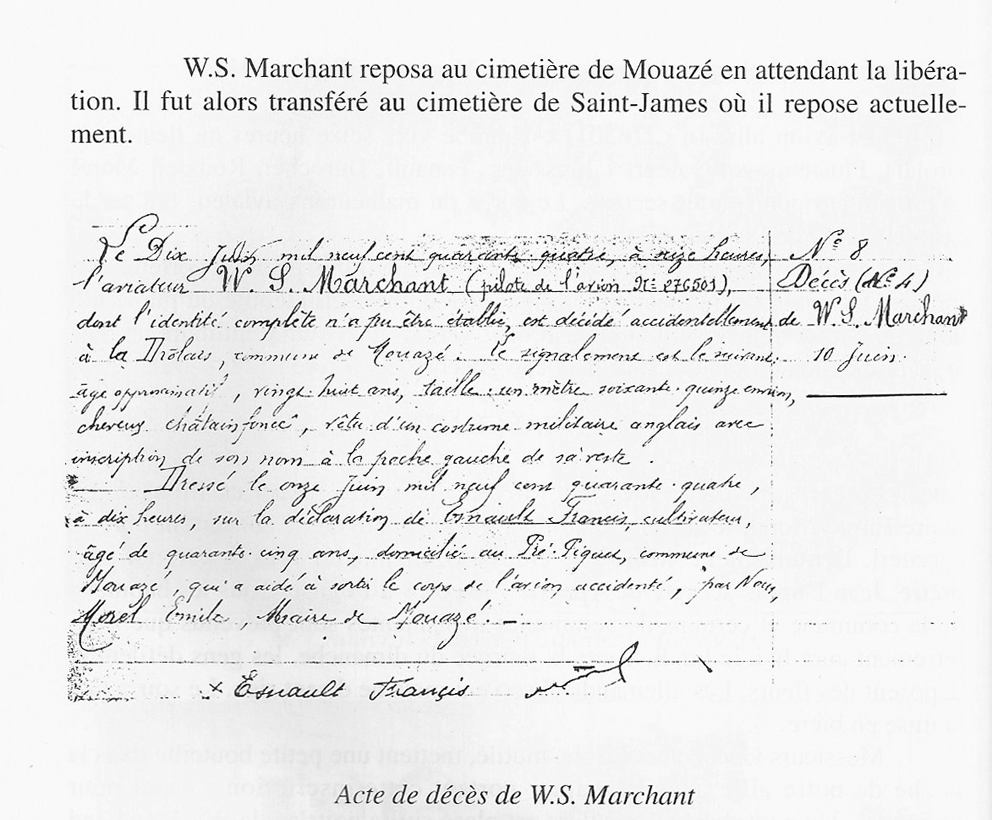 W.S. Marchant reposa au cimetière de Mouazé en attendant la libéra-
tion. Il fut alors transféré au cimetière de Saint-James où il repose actuelle-
ment.
Le Dix Juin mil neuf cent quarante quatre, à seize heures,
l'aviateur W. S. Marchant (pilote de l'avion N°: 276501),
dont l'identité complète n'a pu être établie, est décédé accidentellement
à la commune de Mouazé. Le signalement est le suivant:
âge approximatif, vingt-huit ans, taille un mètre soixante-quinze environ,
cheveux châtain foncé, vêtu d'un costume militaire anglais avec
inscription de son nom à la poche gauche de sa veste.
Dressé le onze Juin mil neuf cent quarante-quatre,
à dix heures, sur la déclaration de Esnault Francis, cultivateur,
âgé de quarante-cinq ans, domicilié au commune de
Mouazé, qui a aidé à sortir le corps de l'avion accidenté, par Nous,
Morel Emile, Maire de Mouazé. —
x Esnault Francis
N° 8
Décès (N° 4)
de W. S. Marchant
10 Juin.
Acte de décès de W.S. Marchant